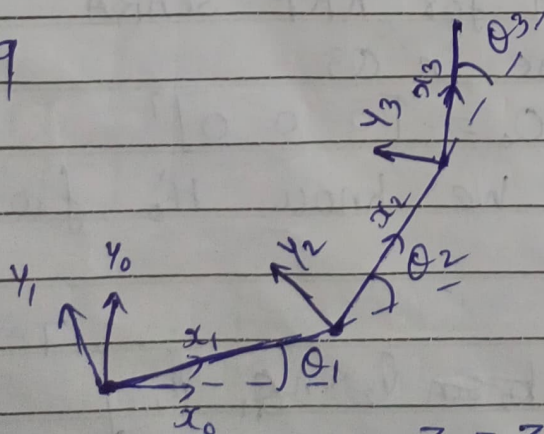 9
θ3
x3
Y3
x2
Y2
θ2
Y1
Y0
x1
θ1
x0